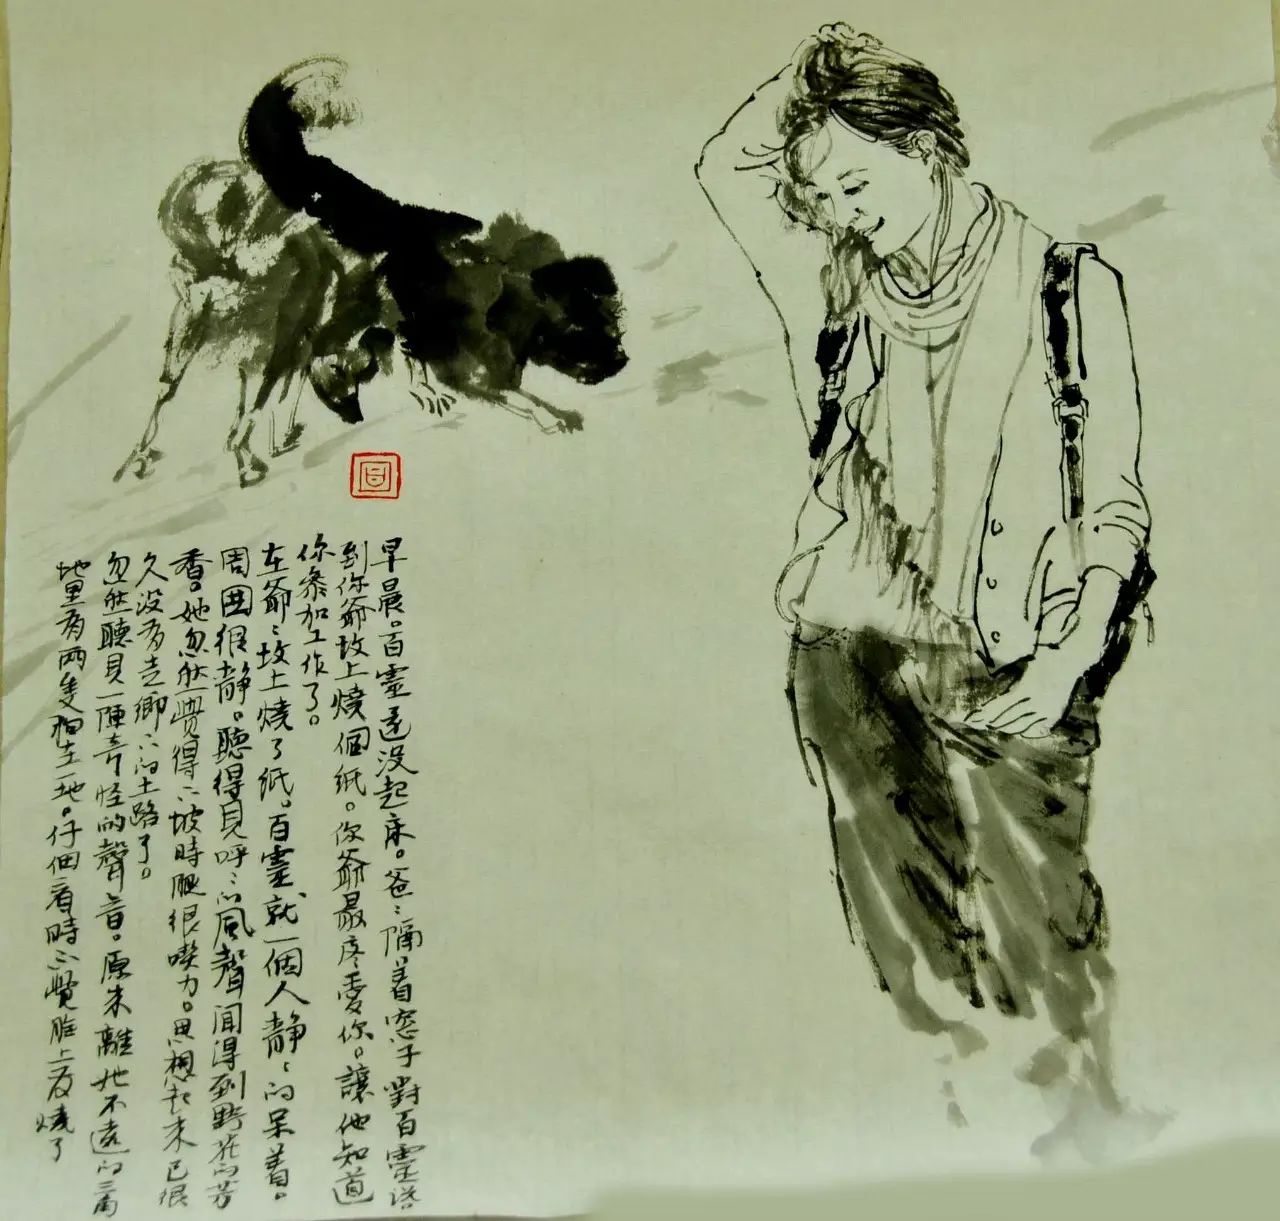 早晨。百靈還没起床。爸〻隔着窓子對百靈說
到你爺坟上燒個紙。你爺最疼愛你。讓他知道
你參加工作了。
在爺〻坟上燒了紙。百靈就一個人静〻的呆着。
周围很静。聽得見呼〻的風聲聞得到野花的芳
香。她忽然覺得上坡時腿很喫力。思想起来已很
久没有走鄉下的土路了。
忽然聽見一陣奇怪的聲音。原来離她不遠的
地里有兩隻狗在一地。仔個看時不覺脸上发燒了